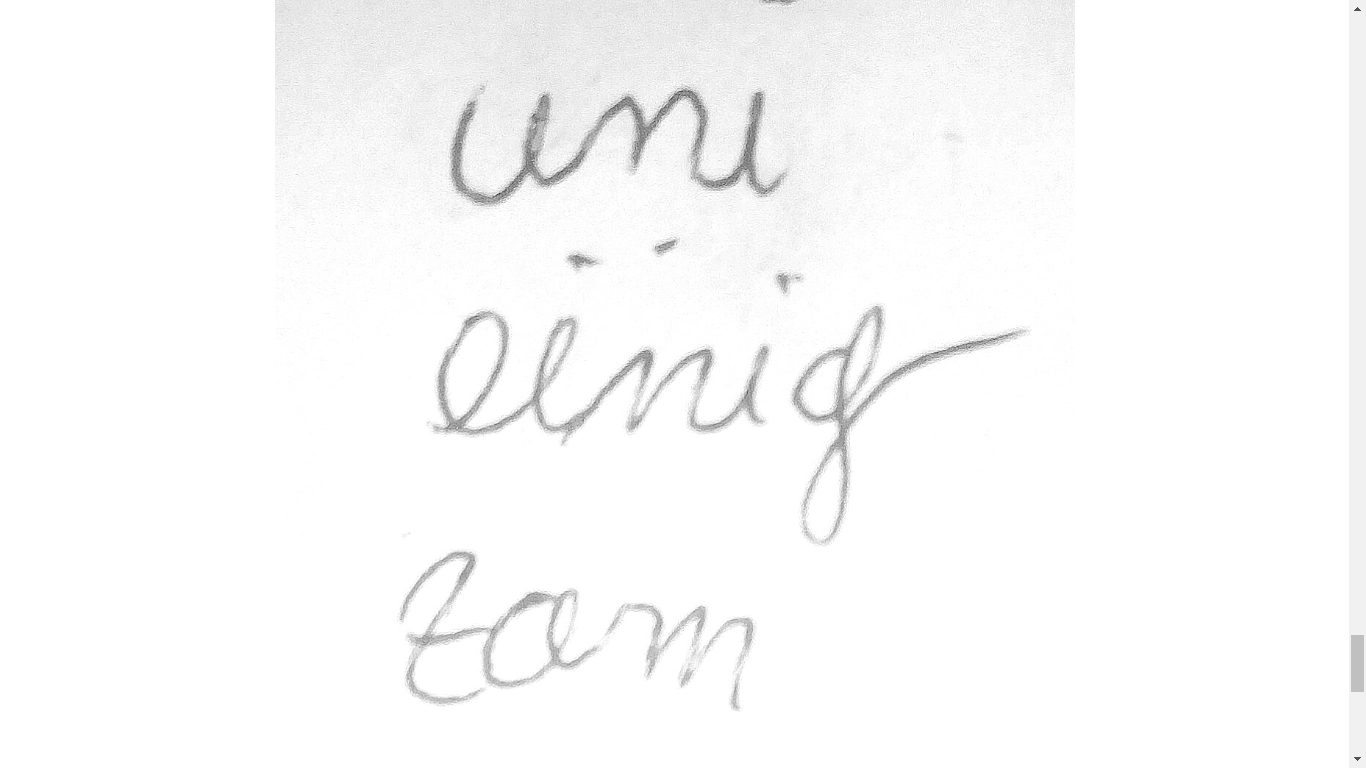 uni
einig
zam